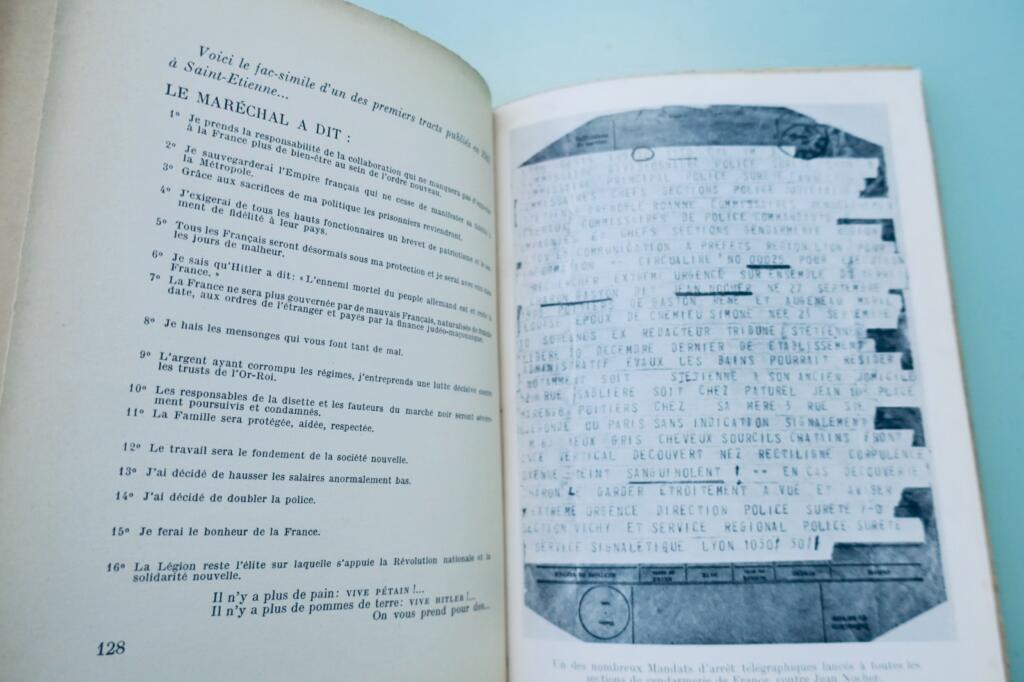 Voici le fac-simile d'un des premiers tracts publiés en
à Saint-Etienne...
LE MARÉCHAL A DIT :
1° Je prends la responsabilité de la collaboration qui ne manquera pas d'apporter
à la France plus de bien-être au sein de l'ordre nouveau.
2° Je sauvegarderai l'Empire français qui ne cesse de manifester sa fidélité à
la Métropole.
3° Grâce aux sacrifices de ma politique les prisonniers reviendront.
4° J'exigerai de tous les hauts fonctionnaires un brevet de patriotisme et le ser-
ment de fidélité à leur pays.
5° Tous les Français seront désormais sous ma protection et je serai avec eux dans
les jours de malheur.
6° Je sais qu'Hitler a dit : « L'ennemi mortel du peuple allemand est et reste la
France. »
7° La France ne sera plus gouvernée par de mauvais Français, naturalisés de fraîche
date, aux ordres de l'étranger et payés par la finance judéo-maçonnique.
8° Je hais les mensonges qui vous font tant de mal.
9° L'argent ayant corrompu les régimes, j'entreprends une lutte décisive contre
les trusts de l'Or-Roi.
10° Les responsables de la disette et les fauteurs du marché noir seront sévère-
ment poursuivis et condamnés.
11° La Famille sera protégée, aidée, respectée.
12° Le travail sera le fondement de la société nouvelle.
13° J'ai décidé de hausser les salaires anormalement bas.
14° J'ai décidé de doubler la police.
15° Je ferai le bonheur de la France.
16° La Légion reste l'élite sur laquelle s'appuie la Révolution nationale et la
solidarité nouvelle.
Il n'y a plus de pain : VIVE PÉTAIN !...
Il n'y a plus de pommes de terre : VIVE HITLER !...
On vous prend pour des...
128
PRINCIPAL POLICE SURETE
CHEFS SECTIONS POLICE
GRENOBLE ROANNE COMMISSAIRES
COMMISSAIRES DE POLICE
ET CHEFS SECTIONS GENDARMERIE
COMMUNICATION A PREFETS REGION LYON POUR
CIRCULAIRE NO 00025 POUR EXECUTION
RECHERCHER EXTREME URGENCE SUR ENSEMBLE DU
GASTON DIT JEAN NOCHER NE 27 SEPTEMBRE
POITIERS DE GASTON RENE ET AUGENEAU MARIE
EPOUX DE CHEMIEU SIMONE NEE 21 SEPTEMBRE
SURESNES EX REDACTEUR TRIBUNE STETIENNE
LIBERE 10 DECEMBRE DERNIER DE ETABLISSEMENT
EVAUX LES BAINS POURRAIT RESIDER
NOTAMMENT SOIT STETIENNE A SON ANCIEN DOMICILE
RUE BADLIERE SOIT CHEZ PATUREL JEAN PLACE
POITIERS CHEZ SA MERE 3 RUE STE
OU PARIS SANS INDICATION SIGNALEMENT
YEUX GRIS CHEVEUX SOURCILS CHATAINS FRONT
VERTICAL DECOUVERT NEZ RECTILIGNE CORPULENCE
TEINT SANGUINOLENT ! -- EN CAS DECOUVERTE
LE GARDER ETROITEMENT A VUE ET AVISER
EXTREME URGENCE DIRECTION POLICE SURETE
SECTION VICHY ET SERVICE REGIONAL POLICE SURETE
SERVICE SIGNALETIQUE LYON 1030/ 30/1
Un des nombreux Mandats d'arrêt télégraphiques lancés à toutes les
sections de gendarmerie de France, contre Jean Nocher.